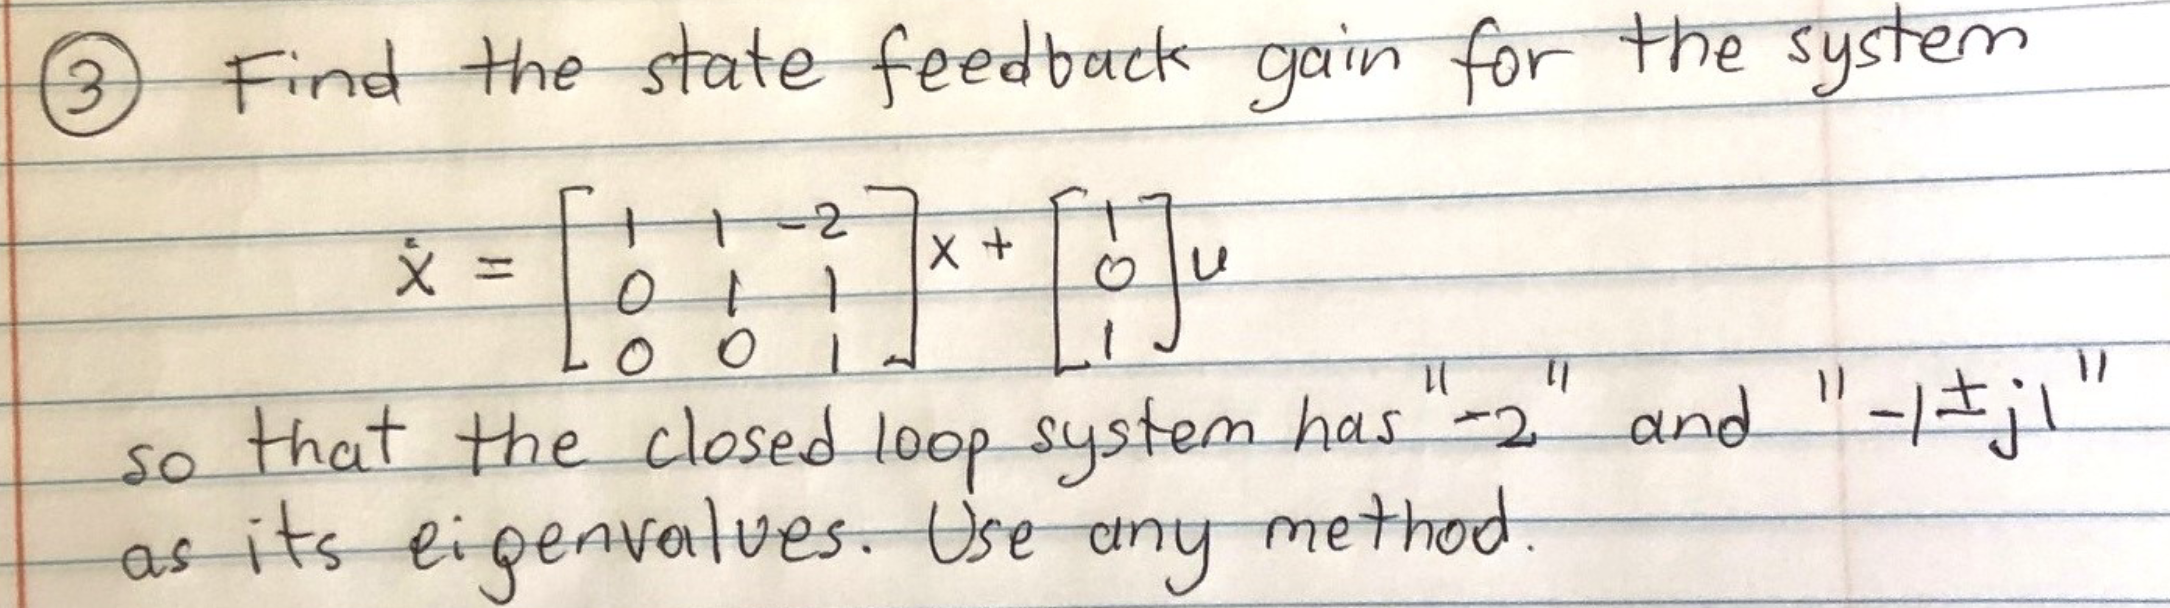 ③ Find the state feedback gain for the system
ẋ = [1 1 -2; 0 1 1; 0 0 1] x + [1; 0; 1] u
so that the closed loop system has "-2" and "-1±j1"
as its eigenvalues. Use any method.